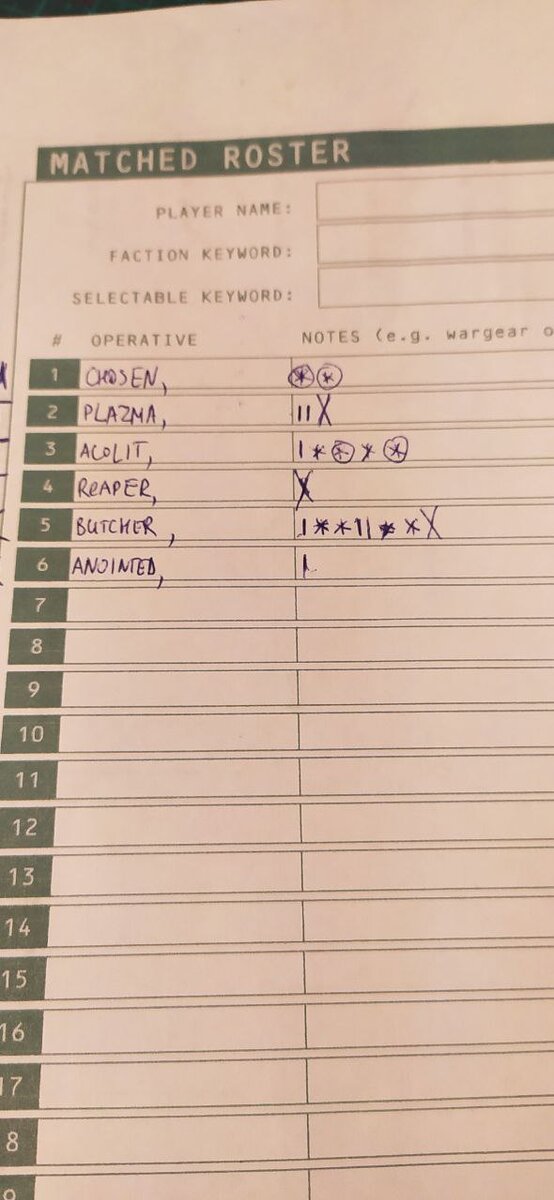 MATCHED ROSTER
PLAYER NAME:
FACTION KEYWORD:
SELECTABLE KEYWORD:
# OPERATIVE NOTES (e.g. wargear o
1 CHOSEN, ⊛⊛
2 PLAZMA, IIX
3 ACOLIT, I*⊛*⊛
4 REAPER, X
5 BUTCHER, I**II**X
6 ANOINTED, I
7
8
9
10
11
12
13
14
15
16
17
8
9